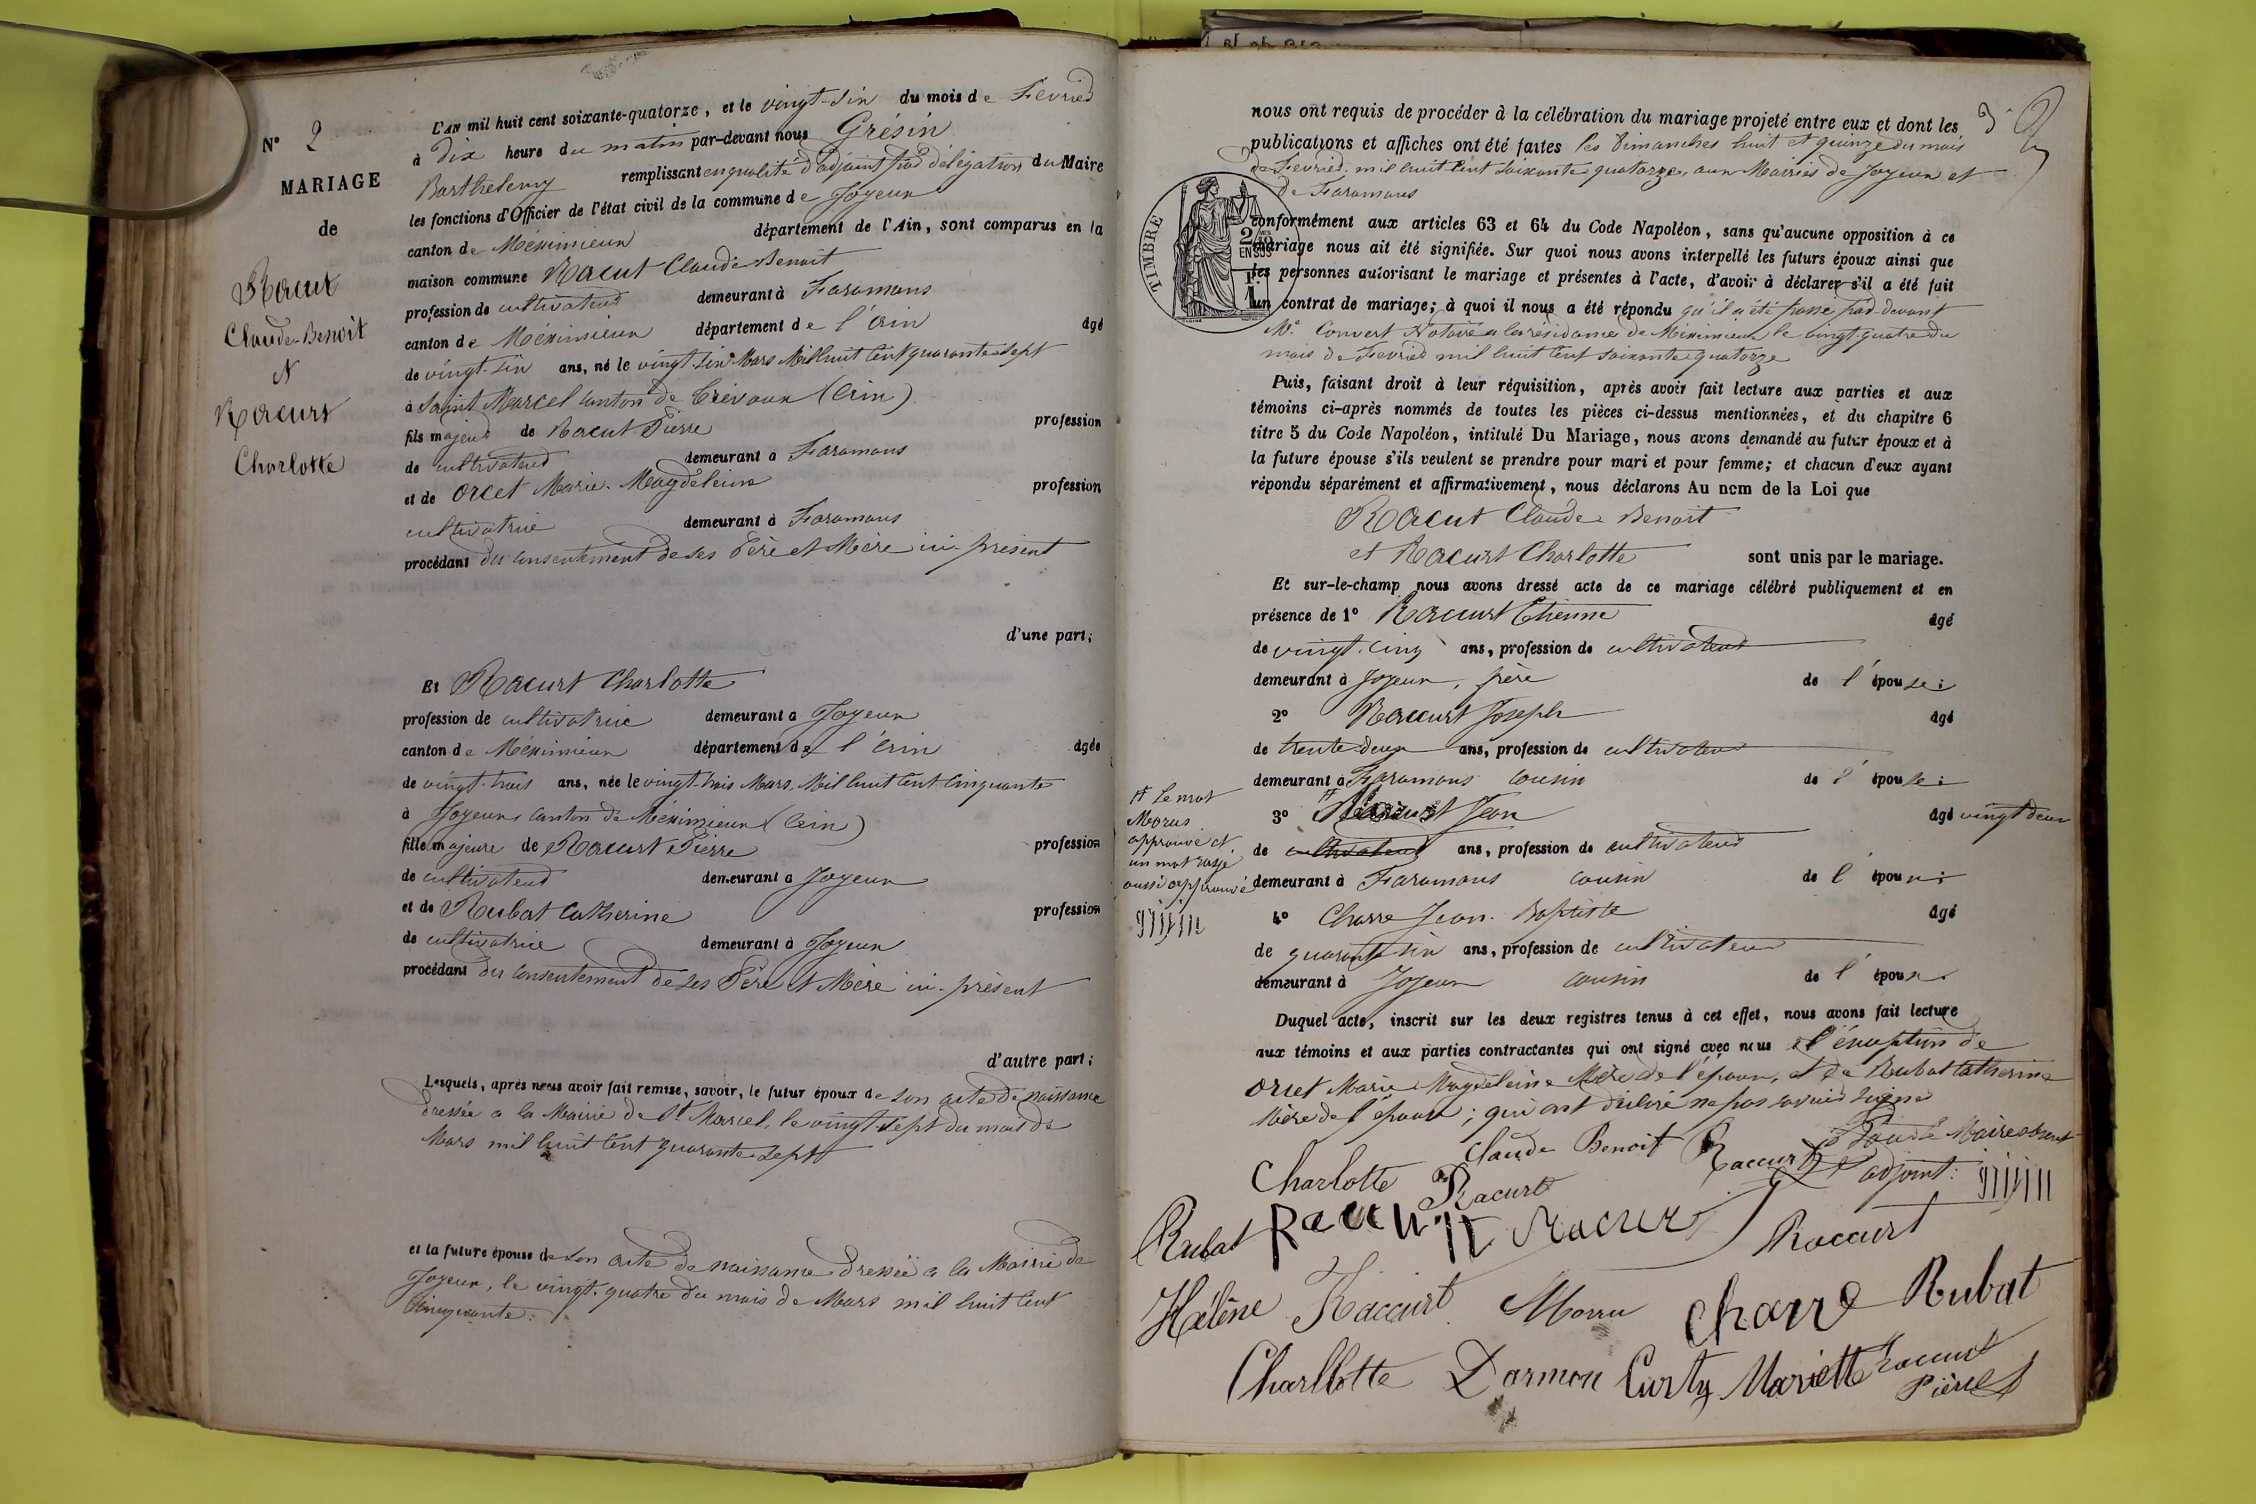 N° 2
MARIAGE
de
Racut
Claude-Benoit
&
Racurt
Charlotte
L'AN mil huit cent soixante-quatorze, et le vingt-six du mois de Fevrier
à dix heure du matin par-devant nous Grésin
Barthelemy remplissant en qualité d'adjoint par délégation du Maire
les fonctions d'Officier de l'état civil de la commune de Joyeux
canton de Méximieux département de l'Ain, sont comparus en la
maison commune Racut Claude Benoit
profession de cultivateur demeurant à Faramans
canton de Méximieux département de l'Ain âgé
de vingt-six ans, né le vingt-six Mars Mil huit cent quarante sept
à Saint Marcel canton de Trévoux (Ain)
fils majeur de Racut Pierre profession
de cultivateur demeurant à Faramans
et de Orcet Marie-Magdeleine profession
cultivatrice demeurant à Faramans
procédant du consentement de ses Père et Mère ici-présent
d'une part;
Et Racurt Charlotte
profession de cultivatrice demeurant à Joyeux
canton de Méximieux département de l'Ain âgée
de vingt-trois ans, née le vingt-trois Mars, Mil huit cent cinquante
à Joyeux, canton de Méximieux (Ain)
fille majeure de Racurt Pierre profession
de cultivateur demeurant à Joyeux
et de Rubat Catherine profession
de cultivatrice demeurant à Joyeux
procédant du consentement de ses Père et Mère ici-présent
d'autre part;
Lesquels, après nous avoir fait remise, savoir, le futur époux de son acte de naissance
dressée a la Mairie de St Marcel, le vingt-sept du mois de
Mars mil huit cent quarante sept
et la future épouse de son acte de naissance dressée a la Mairie de
Joyeux, le vingt-quatre du mois de Mars mil huit cent
Cinquante.
nous ont requis de procéder à la célébration du mariage projeté entre eux et dont les
publications et affiches ont été faites les Dimanches huit et quinze du mois
de Fevrier, mil huit cent soixante quatorze, aux Mairies de Joyeux et
de Faramans
TIMBRE
2/10
EN SUS
1 F.
conformément aux articles 63 et 64 du Code Napoléon, sans qu'aucune opposition à ce
mariage nous ait été signifiée. Sur quoi nous avons interpellé les futurs époux ainsi que
les personnes autorisant le mariage et présentes à l'acte, d'avoir à déclarer s'il a été fait
un contrat de mariage; à quoi il nous a été répondu qu'il a été passé par devant
Me Convert Notaire a la résidance de Méximieux le vingt-quatre du
mois de Fevrier mil huit cent soixante quatorze
Puis, faisant droit à leur réquisition, après avoir fait lecture aux parties et aux
témoins ci-après nommés de toutes les pièces ci-dessus mentionnées, et du chapitre 6
titre 5 du Code Napoléon, intitulé Du Mariage, nous avons demandé au futur époux et à
la future épouse s'ils veulent se prendre pour mari et pour femme; et chacun d'eux ayant
répondu séparément et affirmativement, nous déclarons Au nom de la Loi que
Racut Claude Benoit
et Racurt Charlotte sont unis par le mariage.
Et sur-le-champ nous avons dressé acte de ce mariage célébré publiquement et en
présence de 1° Racurt Etienne âgé
de vingt-cinq ans, profession de cultivateur
demeurant à Joyeux, frère de l'épouse;
2° Raccurt Joseph âgé
de trente deux ans, profession de cultivateur
demeurant à Faramans cousin de l'épouse;
3° Jean âgé vingt deux
de cultivateur ans, profession de cultivateur
demeurant à Faramans cousin de l'époux;
4° Charre Jean-Baptiste âgé
de quarante six ans, profession de cultivateur
demeurant à Joyeux cousin de l'époux.
Le mot
Morus
approuvé et
un mot rayé
aussi approuvé
Duquel acte, inscrit sur les deux registres tenus à cet effet, nous avons fait lecture
aux témoins et aux parties contractantes qui ont signé avec nous à l'exception de
Orcet Marie Magdeleine Mère de l'époux, et de Rubat Catherine
Mère de l'épouse; qui ont déclaré ne pas savoir signer
Claude Benoit Raccurt Pour le Maire absent
Charlotte Racurt l'adjoint:
Rubat Racurt Racurt Raccurt
Hélène Raccurt Morru Charre Rubat
Charllotte Darmon Curty Mariette Racurt
Pierre